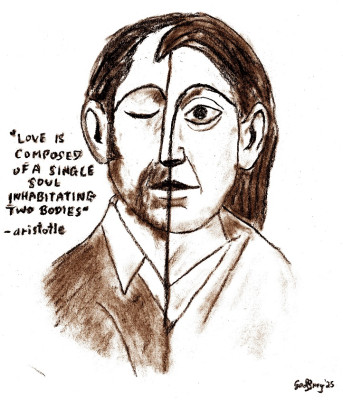 "LOVE IS
COMPOSED
OF A SINGLE
SOUL
INHABITATING
TWO BODIES"
-aristotle